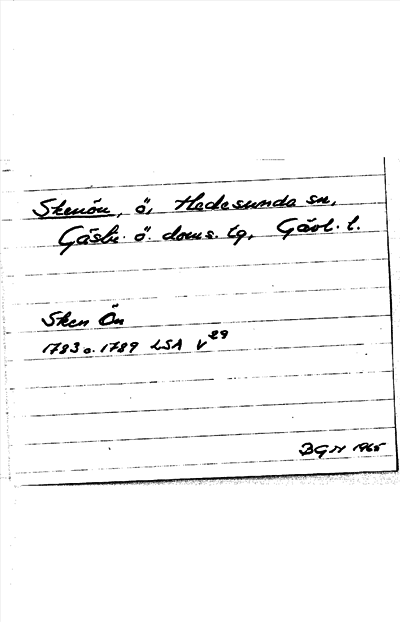 Skenön, ö, Hedesunda sn,
Gästr. ö. doms. tg, Gävl. l.
Sken Ön
1783 o. 1789 LSA V 29
BGN 1965